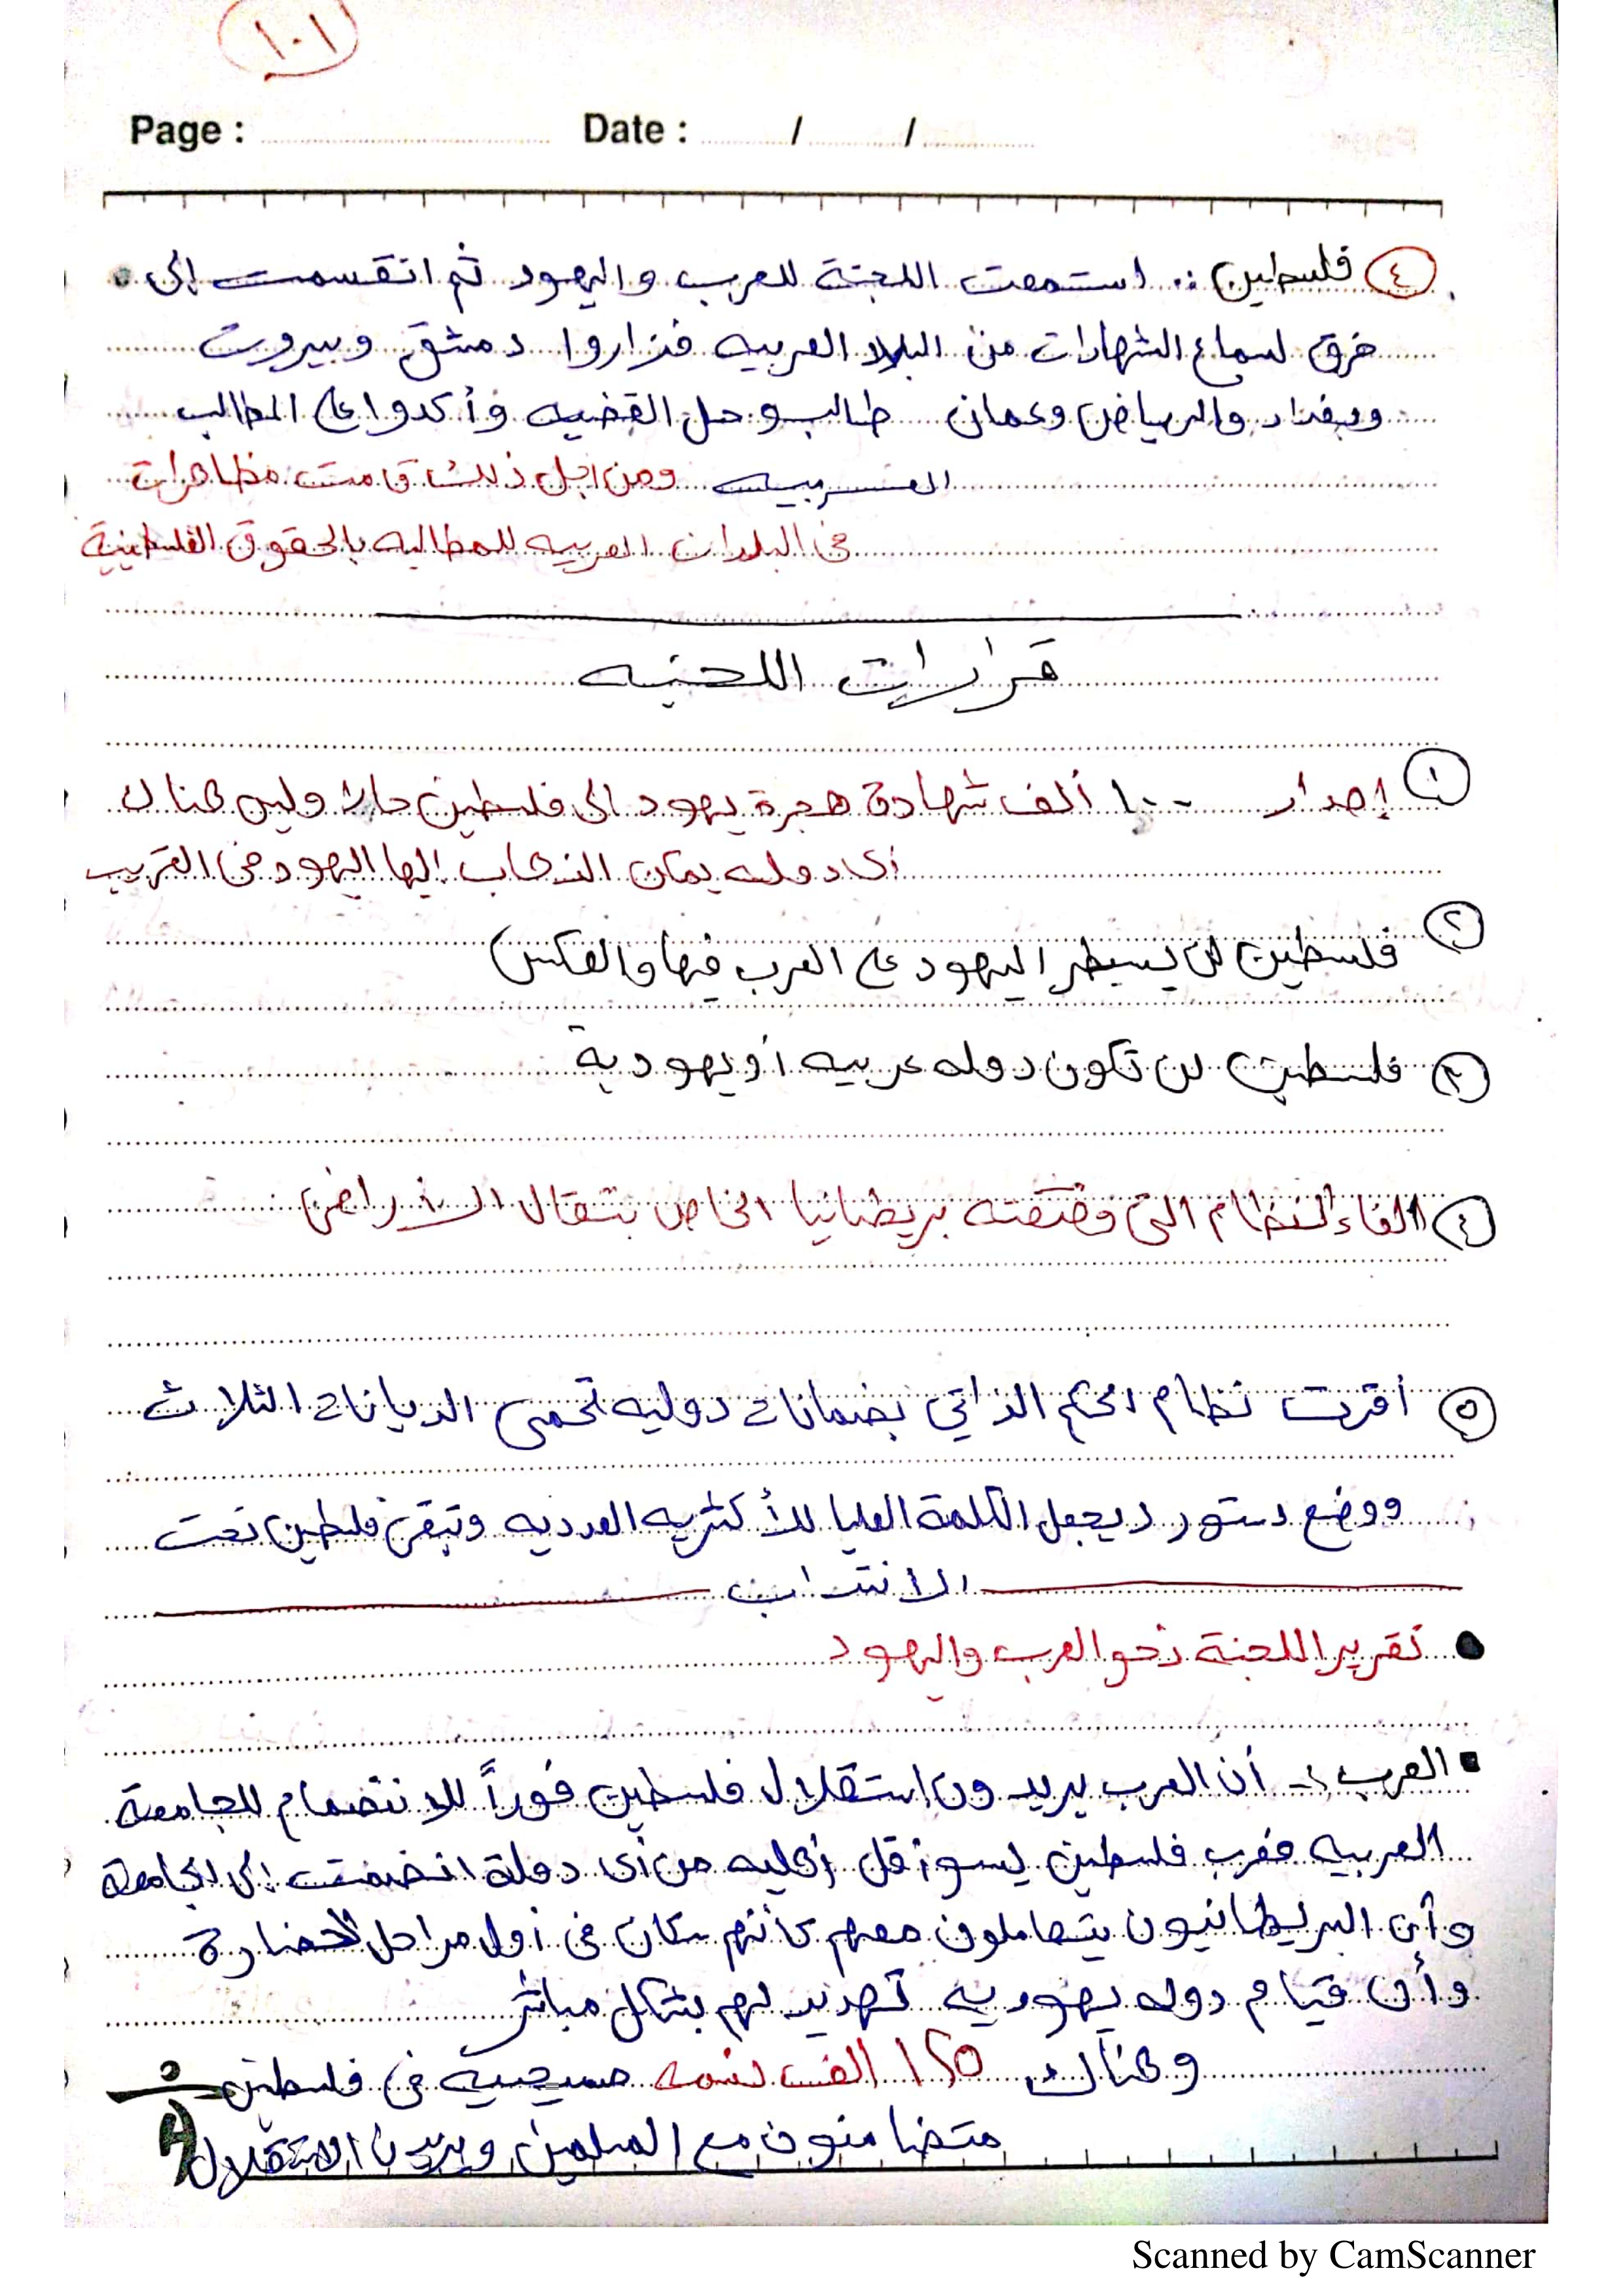 ١٠١
Page : Date : / /
٤ فلسطين :. استمعت اللجنة للعرب واليهود ثم انقسمت إلى
فرق لسماع الشهادات من البلاد العربيه فزاروا دمشق وبيروت
وبغداد والرياض وعمان طالبو حل القضيه وأكدوا على المطالب
العربيه ومن اجل ذلك قامت مظاهرات
فى البلدان العربيه للمطالبه بالحقوق الفلسطينية
قرارات اللجنه
١ إصدار ١٠٠ ألف شهادة هجرة يهود الى فلسطين حالا وليس هناك
أى دوله يمكن الذهاب إليها اليهود فى القريب
٢ فلسطين لن يسيطر اليهود على العرب فيها والعكس
٣ فلسطين لن تكون دوله عربيه أو يهودية
٤ الغاء النظام التى وضعته بريطانيا الخاص بتقال الاراضى
٥ أقرت نظام الحكم الذاتي بضمانات دوليه تحمى الديانات الثلاث
ووضع دستور ديجعل الكلمة العليا للأكثريه العدديه وتبقى فلسطين تحت
الانتداب
تقرير اللجنة نحو العرب واليهود
العرب :- أن العرب يريدون استقلال فلسطين فوراً للانتضمام للجامعة
العربيه فعرب فلسطين ليسو أقل أهليه من أى دولة انضمت إلى الجامعة
وأن البريطانيون يتعاملون معهم كأنهم سكان فى أول مراحل الحضارة
وأن قيام دوله يهوديه تهديد لهم بشكل مباشر
وهناك ١٢٥ الف نسمه مسيحيه فى فلسطين
متضامنون مع المسلمين ويريدون الاستقلال
Scanned by CamScanner